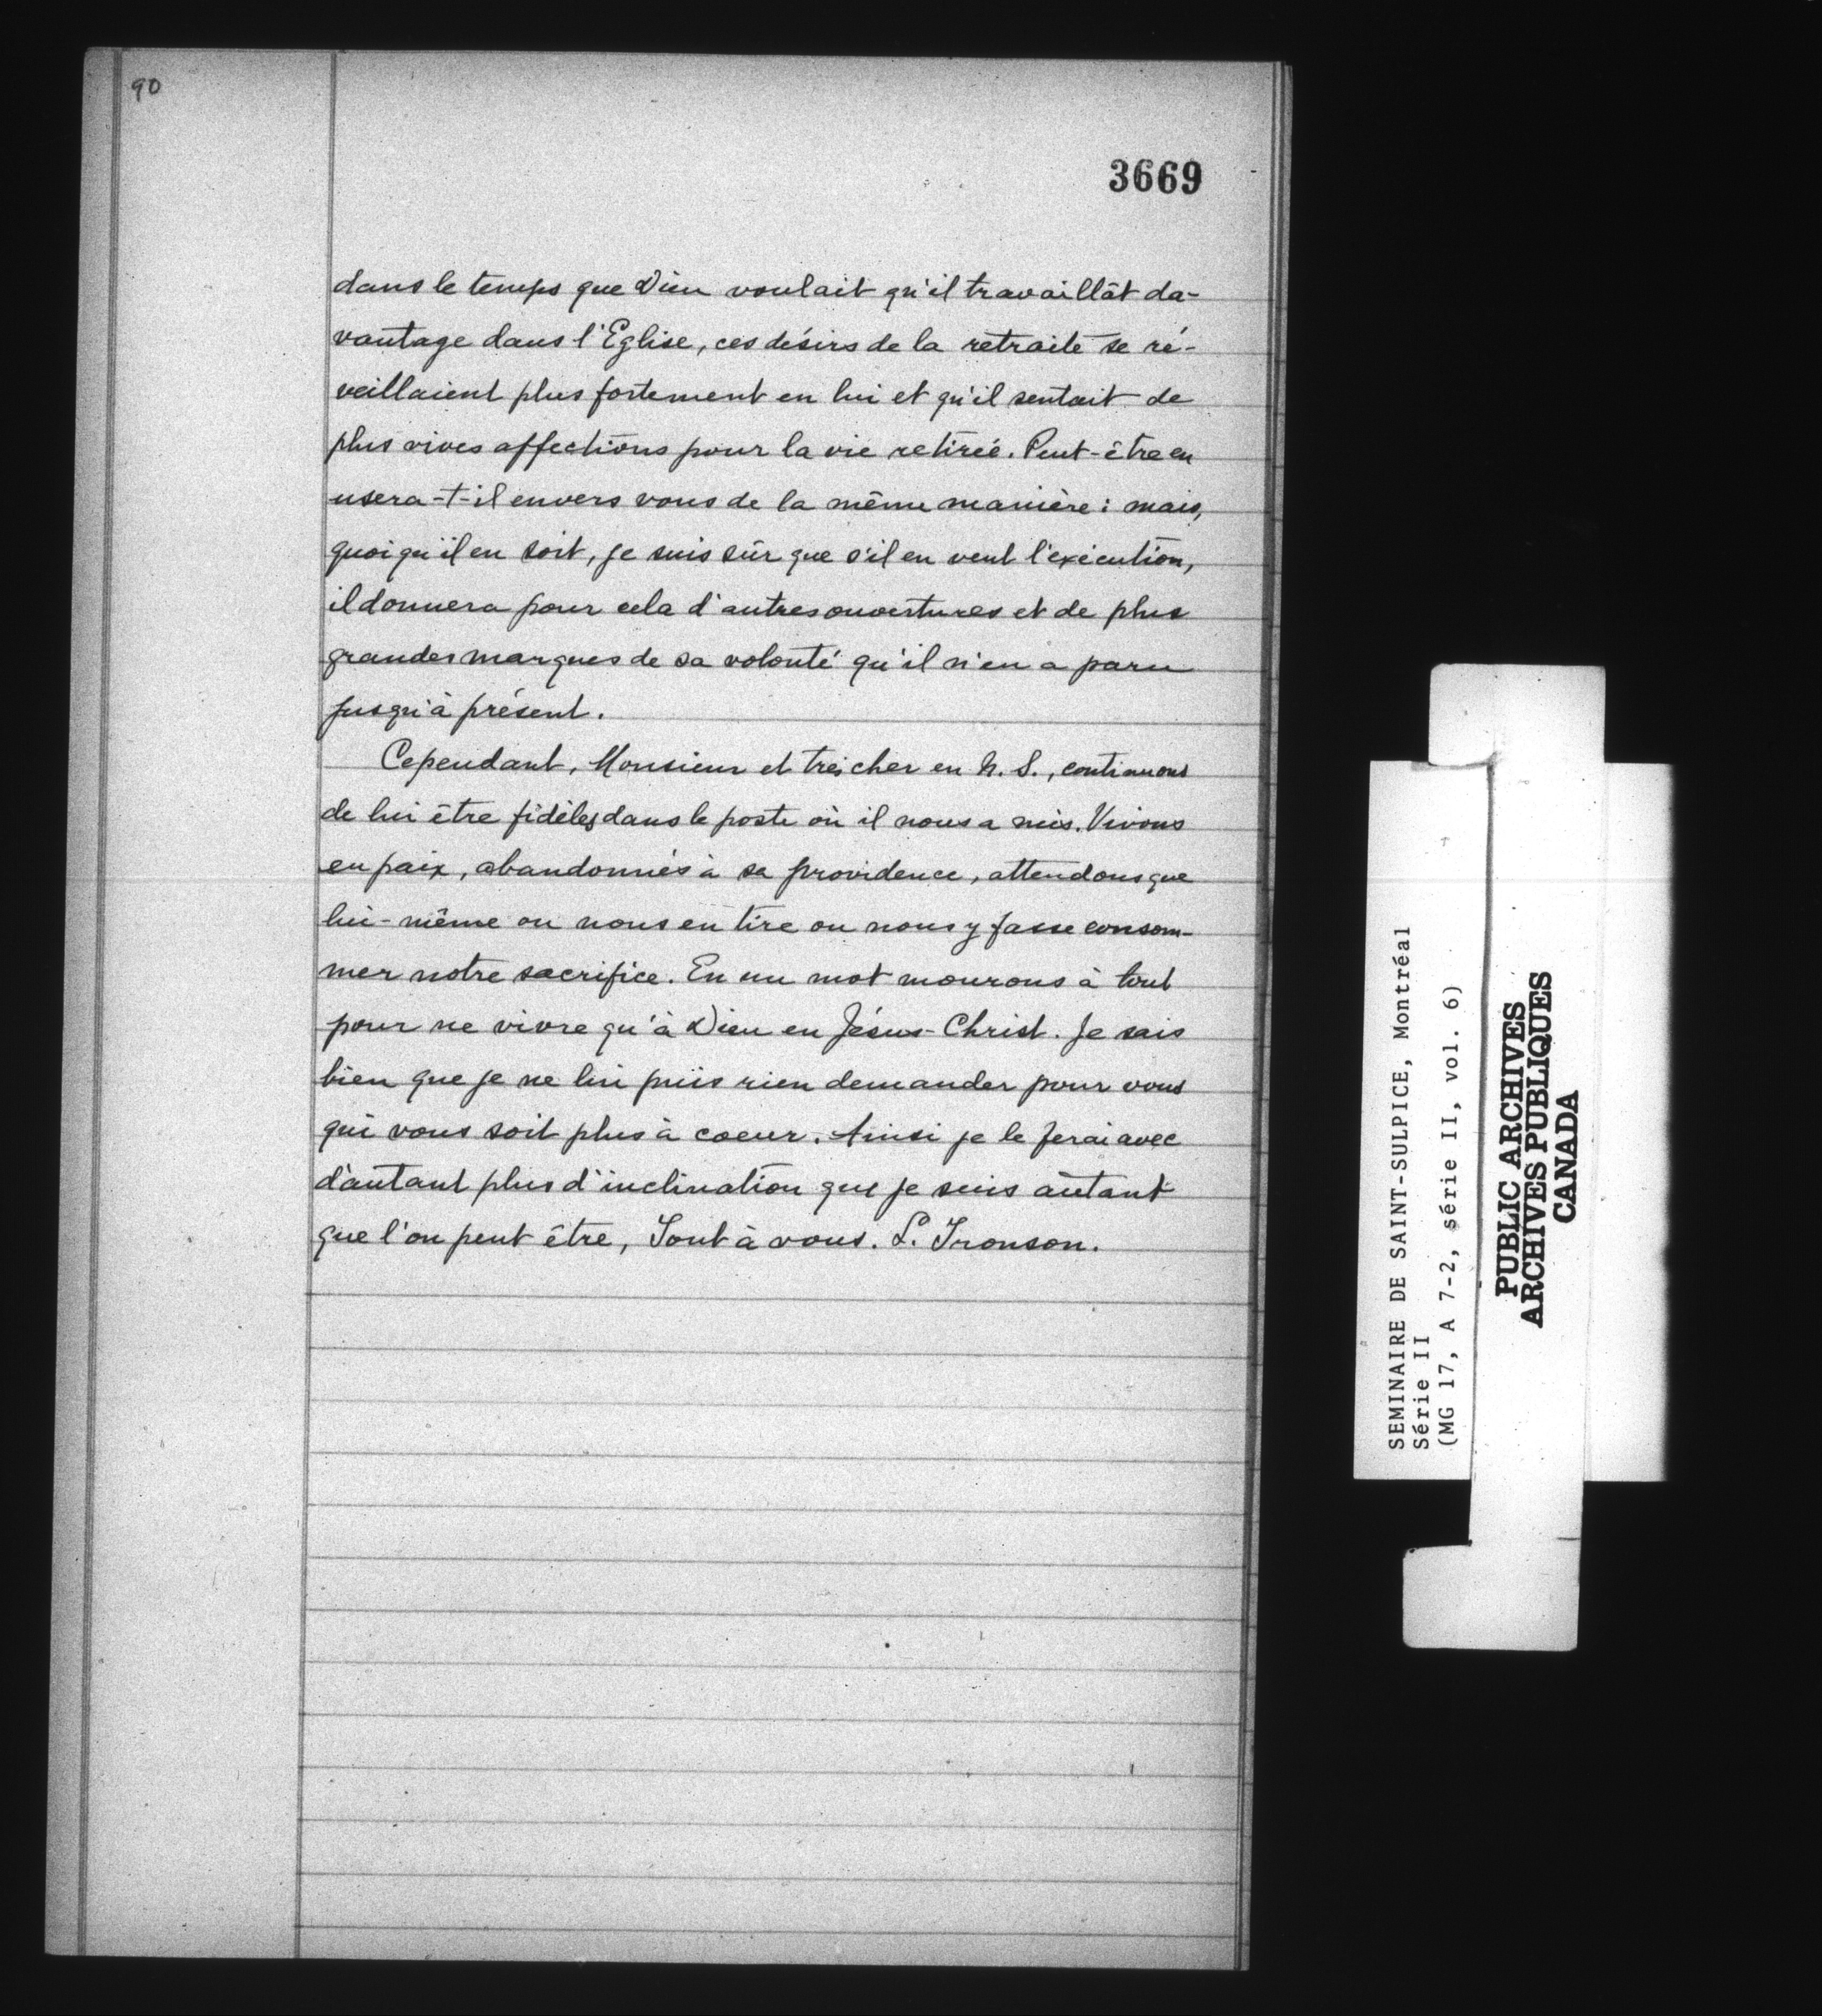 90
3669
dans le temps que Dieu voulait qu'il travaillât da-
vantage dans l'Eglise, ces désirs de la retraite se ré-
veillaient plus fortement en lui et qu'il sentait de
plus vives affections pour la vie retirée. Peut-être en
usera-t-il envers vous de la même manière : mais,
quoiqu'il en soit, je suis sûr que s'il en veut l'exécution,
il donnera pour cela d'autres ouvertures et de plus
grandes marques de sa volonté qu'il n'en a paru
jusqu'à présent.
Cependant, Monsieur et très cher en N. S., continuons
de lui être fidèles dans le poste où il nous a mis. Vivons
en paix, abandonnés à sa providence, attendons que
lui-même ou nous en tire ou nous y fasse consom-
mer notre sacrifice. En un mot mourons à tout
pour ne vivre qu'à Dieu en Jésus-Christ. Je sais
bien que je ne lui puis rien demander pour vous
qui vous soit plus à coeur. Ainsi je le ferai avec
d'autant plus d'inclination que je suis autant
que l'on peut être, Tout à vous. L. Tronson.
SEMINAIRE DE SAINT-SULPICE, Montréal
Série II
(MG 17, A 7-2, série II, vol. 6)
PUBLIC ARCHIVES
ARCHIVES PUBLIQUES
CANADA